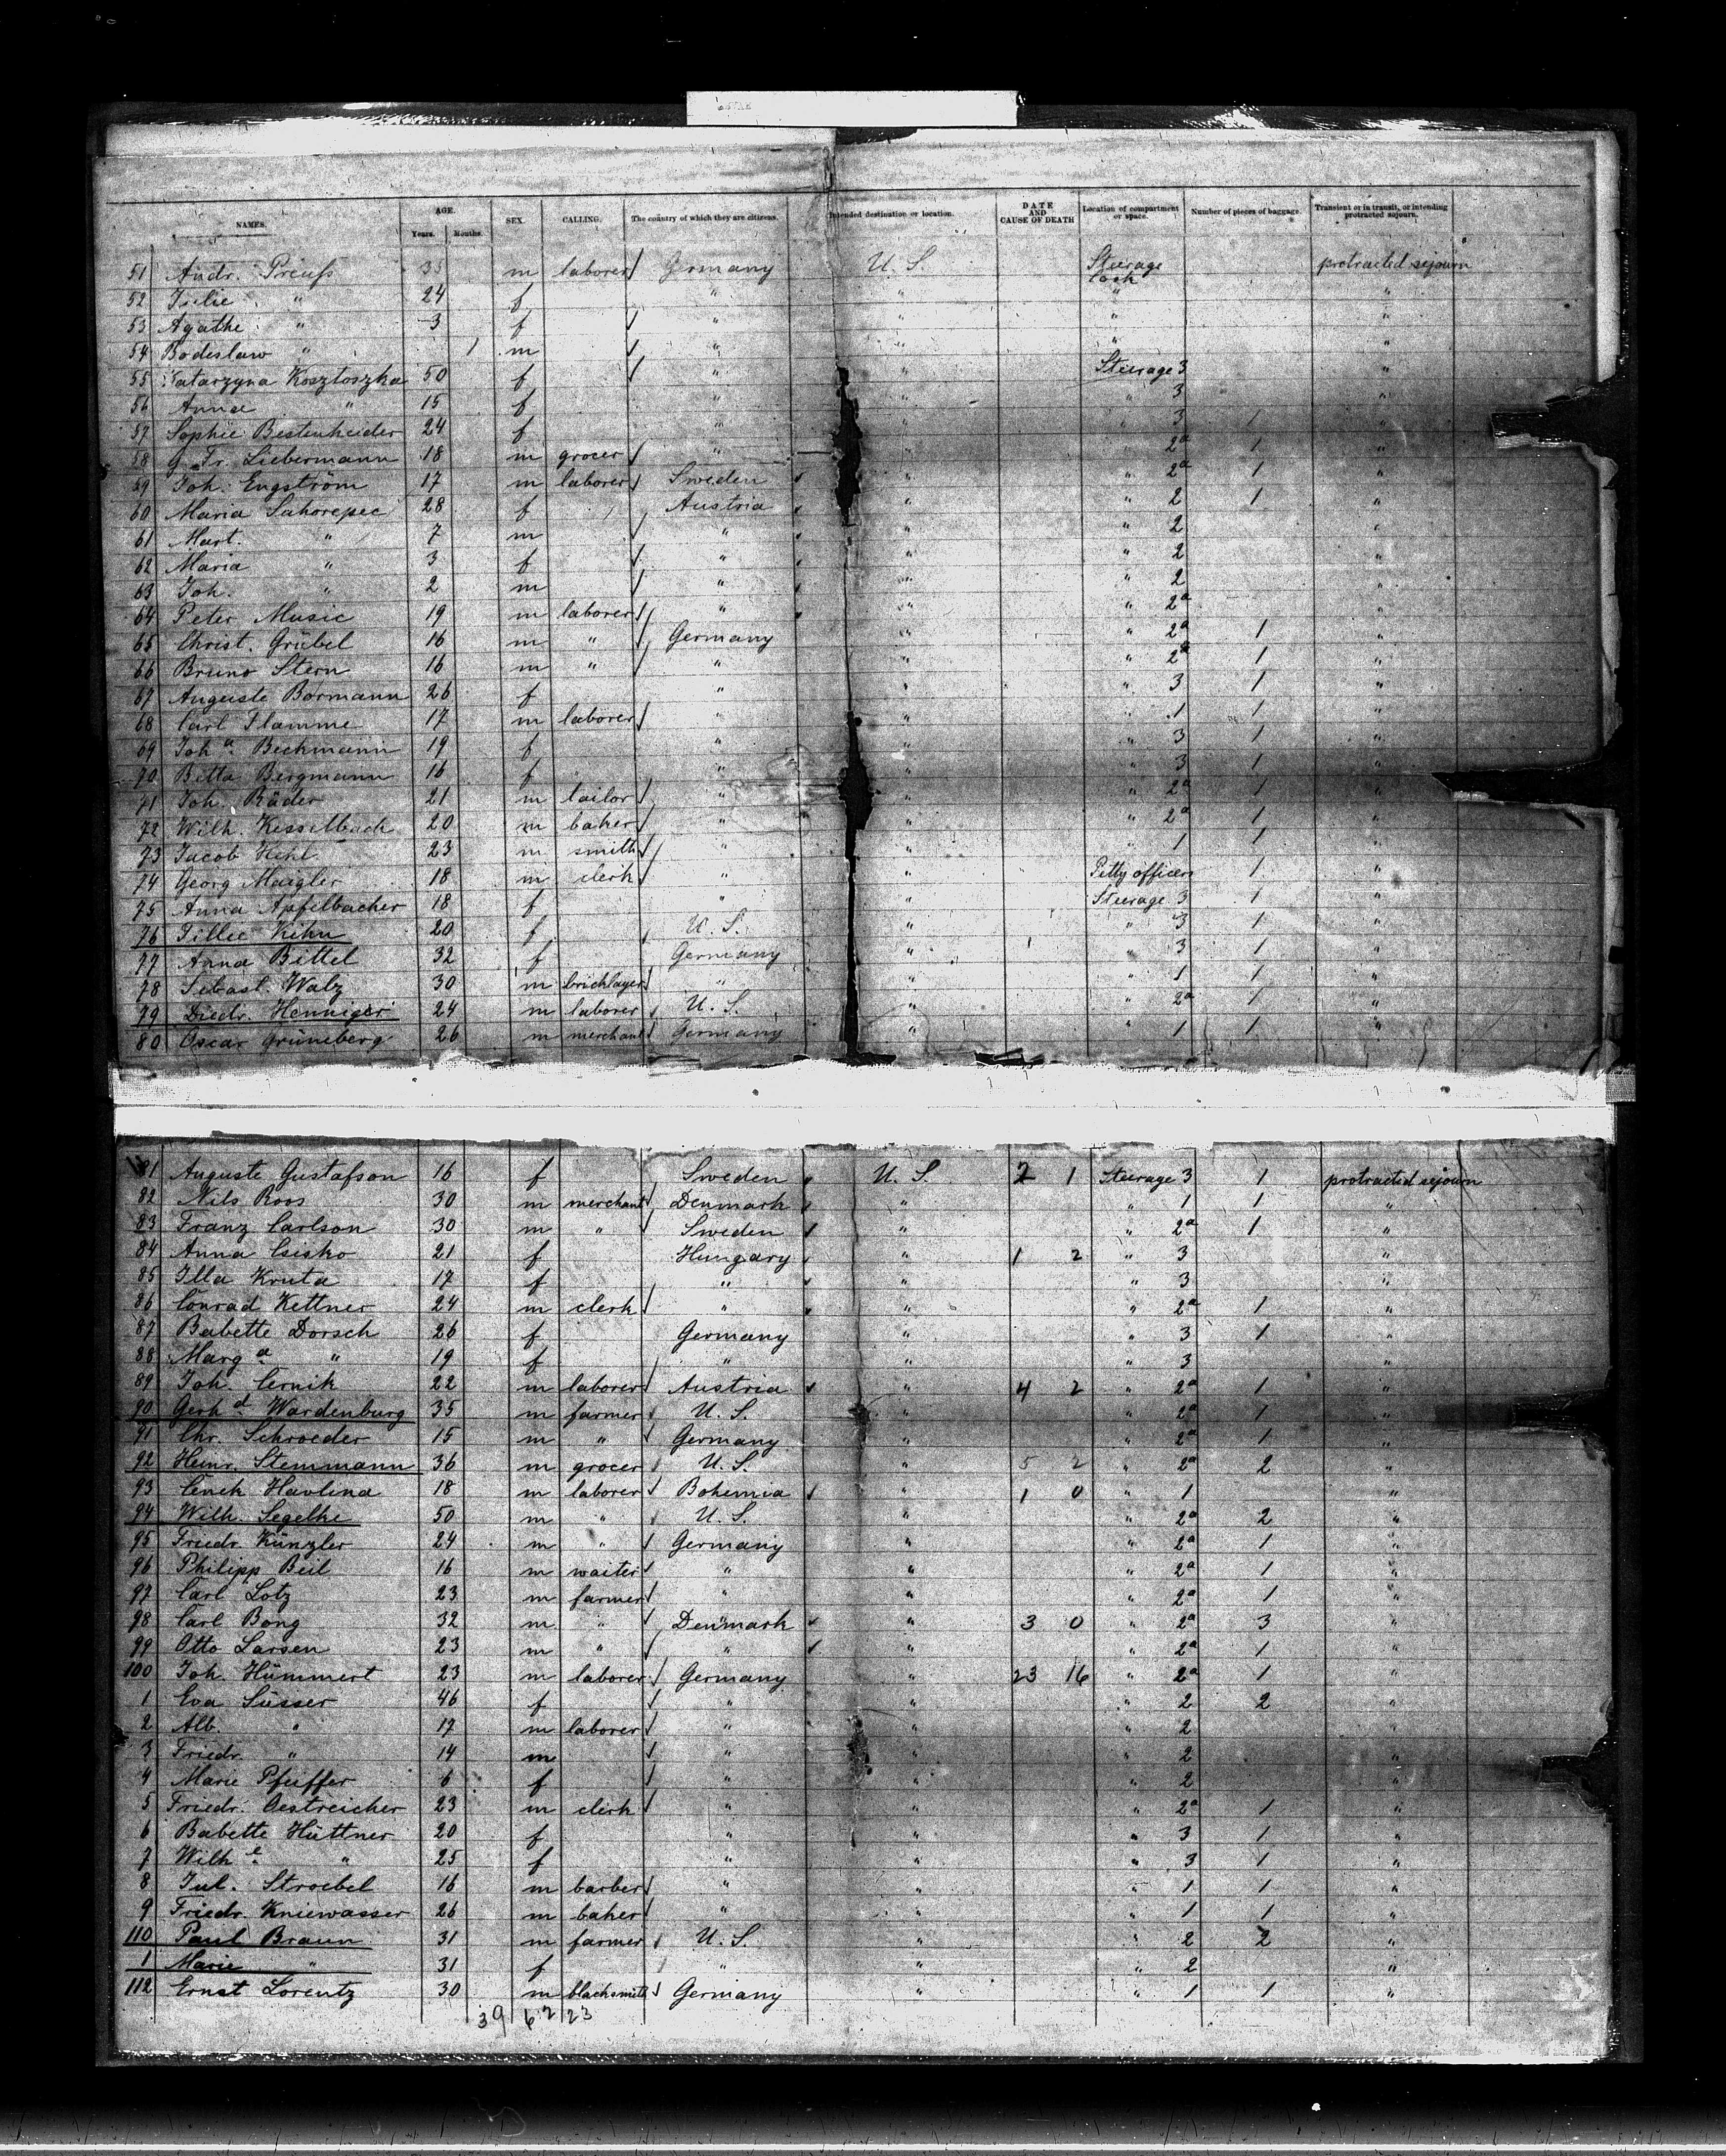 NAMES. AGE. Years. Months. SEX. CALLING. The country of which they are citizens. Intended destination or location. DATE AND CAUSE OF DEATH Location of compartment or space. Number of pieces of baggage. Transient or in transit, or intending protracted sejourn.
51 Andr. Preuß 35 m laborer Germany U. S. Steerage protracted sejourn
52 Julie " 24 f " " " "
53 Agathe " 3 f " " " "
54 Bodeslaw " 1 m " " " "
55 Katarzyna Kosztoszka 50 f " " Steerage 3 "
56 Anna " 15 f " " " 3 "
57 Sophie Bestenheider 24 f " " " 3 1 "
58 G. Fr. Liebermann 18 m grocer " " " 2a 1 "
59 Joh. Engström 17 m laborer Sweden " " 2a 1 "
60 Maria Sahorepec 28 f Austria " " 2 1 "
61 Mart. " 7 m " " " 2 "
62 Maria " 3 f " " " 2 "
63 Joh. " 2 m " " " 2 "
64 Peter Music 19 m laborer " " " 2a "
65 Christ. Grübel 16 m " Germany " " 2a 1 "
66 Bruno Stern 16 m " " " " 2a 1 "
67 Auguste Bormann 26 f " " " 3 1 "
68 Carl Flamme 17 m laborer " " " 1 1 "
69 Joha. Beckmann 19 f " " " 3 1 "
70 Betta Bergmann 16 f " " " 3 1 "
71 Joh. Räder 21 m tailor " " " 2a 1 "
72 Wilh. Kesselbach 20 m baker " " " 2a 1 "
73 Jacob Hehl 23 m smith " " " 1 1 "
74 Georg Maigler 18 m clerk " " Petty officers 1 "
75 Anna Apfelbacher 18 f " " Steerage 3 1 "
76 Tillie Kihn 20 f U. S. " " 3 1 "
77 Anna Bittel 32 f Germany " " 3 1 "
78 Sebast. Walz 30 m bricklayer " " " 1 1 "
79 Diedr. Henniger 24 m laborer U. S. " " 2a 1 "
80 Oscar Grüneberg 26 m merchant Germany " " 1 1 "
81 Auguste Gustafson 16 f Sweden U. S. 2 1 Steerage 3 1 protracted sejourn
82 Nils Roos 30 m merchant Denmark " " 1 1 "
83 Franz Carlson 30 m " Sweden " " 2a 1 "
84 Anna Csisko 21 f Hungary " 1 2 " 3 "
85 Illa Kruta 17 f " " " 3 "
86 Conrad Kettner 24 m clerk " " " 2a 1 "
87 Babette Dorsch 26 f Germany " " 3 1 "
88 Marga. " 19 f " " " 3 "
89 Joh. Cernik 22 m laborer Austria " 4 2 " 2a 1 "
90 Gerhd. Wardenburg 35 m farmer U. S. " " 2a 1 "
91 Chr. Schroeder 15 m " Germany " " 2a 1 "
92 Heinr. Stemmann 36 m grocer U. S. " 5 2 " 2a 2 "
93 Cenek Havlena 18 m laborer Bohemia " 1 0 " 1 "
94 Wilh. Segelke 50 m " U. S. " " 2a 2 "
95 Friedr. Künzler 24 m " Germany " " 2a 1 "
96 Philipp Beil 16 m waiter " " " 2a 1 "
97 Carl Lotz 23 m farmer " " " 2a 1 "
98 Carl Bong 32 m " Denmark " 3 0 " 2a 3 "
99 Otto Larsen 23 m " " " " 2a 1 "
100 Joh. Hümmert 23 m laborer Germany " 23 16 " 2a 1 "
1 Eva Süsser 46 f " " " 2 2 "
2 Alb. " 17 m laborer " " " 2 "
3 Friedr. " 14 m " " " 2 "
4 Marie Pfeiffer 6 f " " " 2 "
5 Friedr. Oestreicher 23 m clerk " " " 2a 1 "
6 Babette Hüttner 20 f " " " 3 1 "
7 Wilhe. " 25 f " " " 3 1 "
8 Jul. Stroebel 16 m barber " " " 1 1 "
9 Friedr. Kniewasser 26 m baker " " " 1 1 "
110 Paul Braun 31 m farmer U. S. " " 2 2 "
1 Marie " 31 f " " " 2 "
112 Ernst Lorentz 30 m blacksmith Germany " " 1 1 "
39 62 23